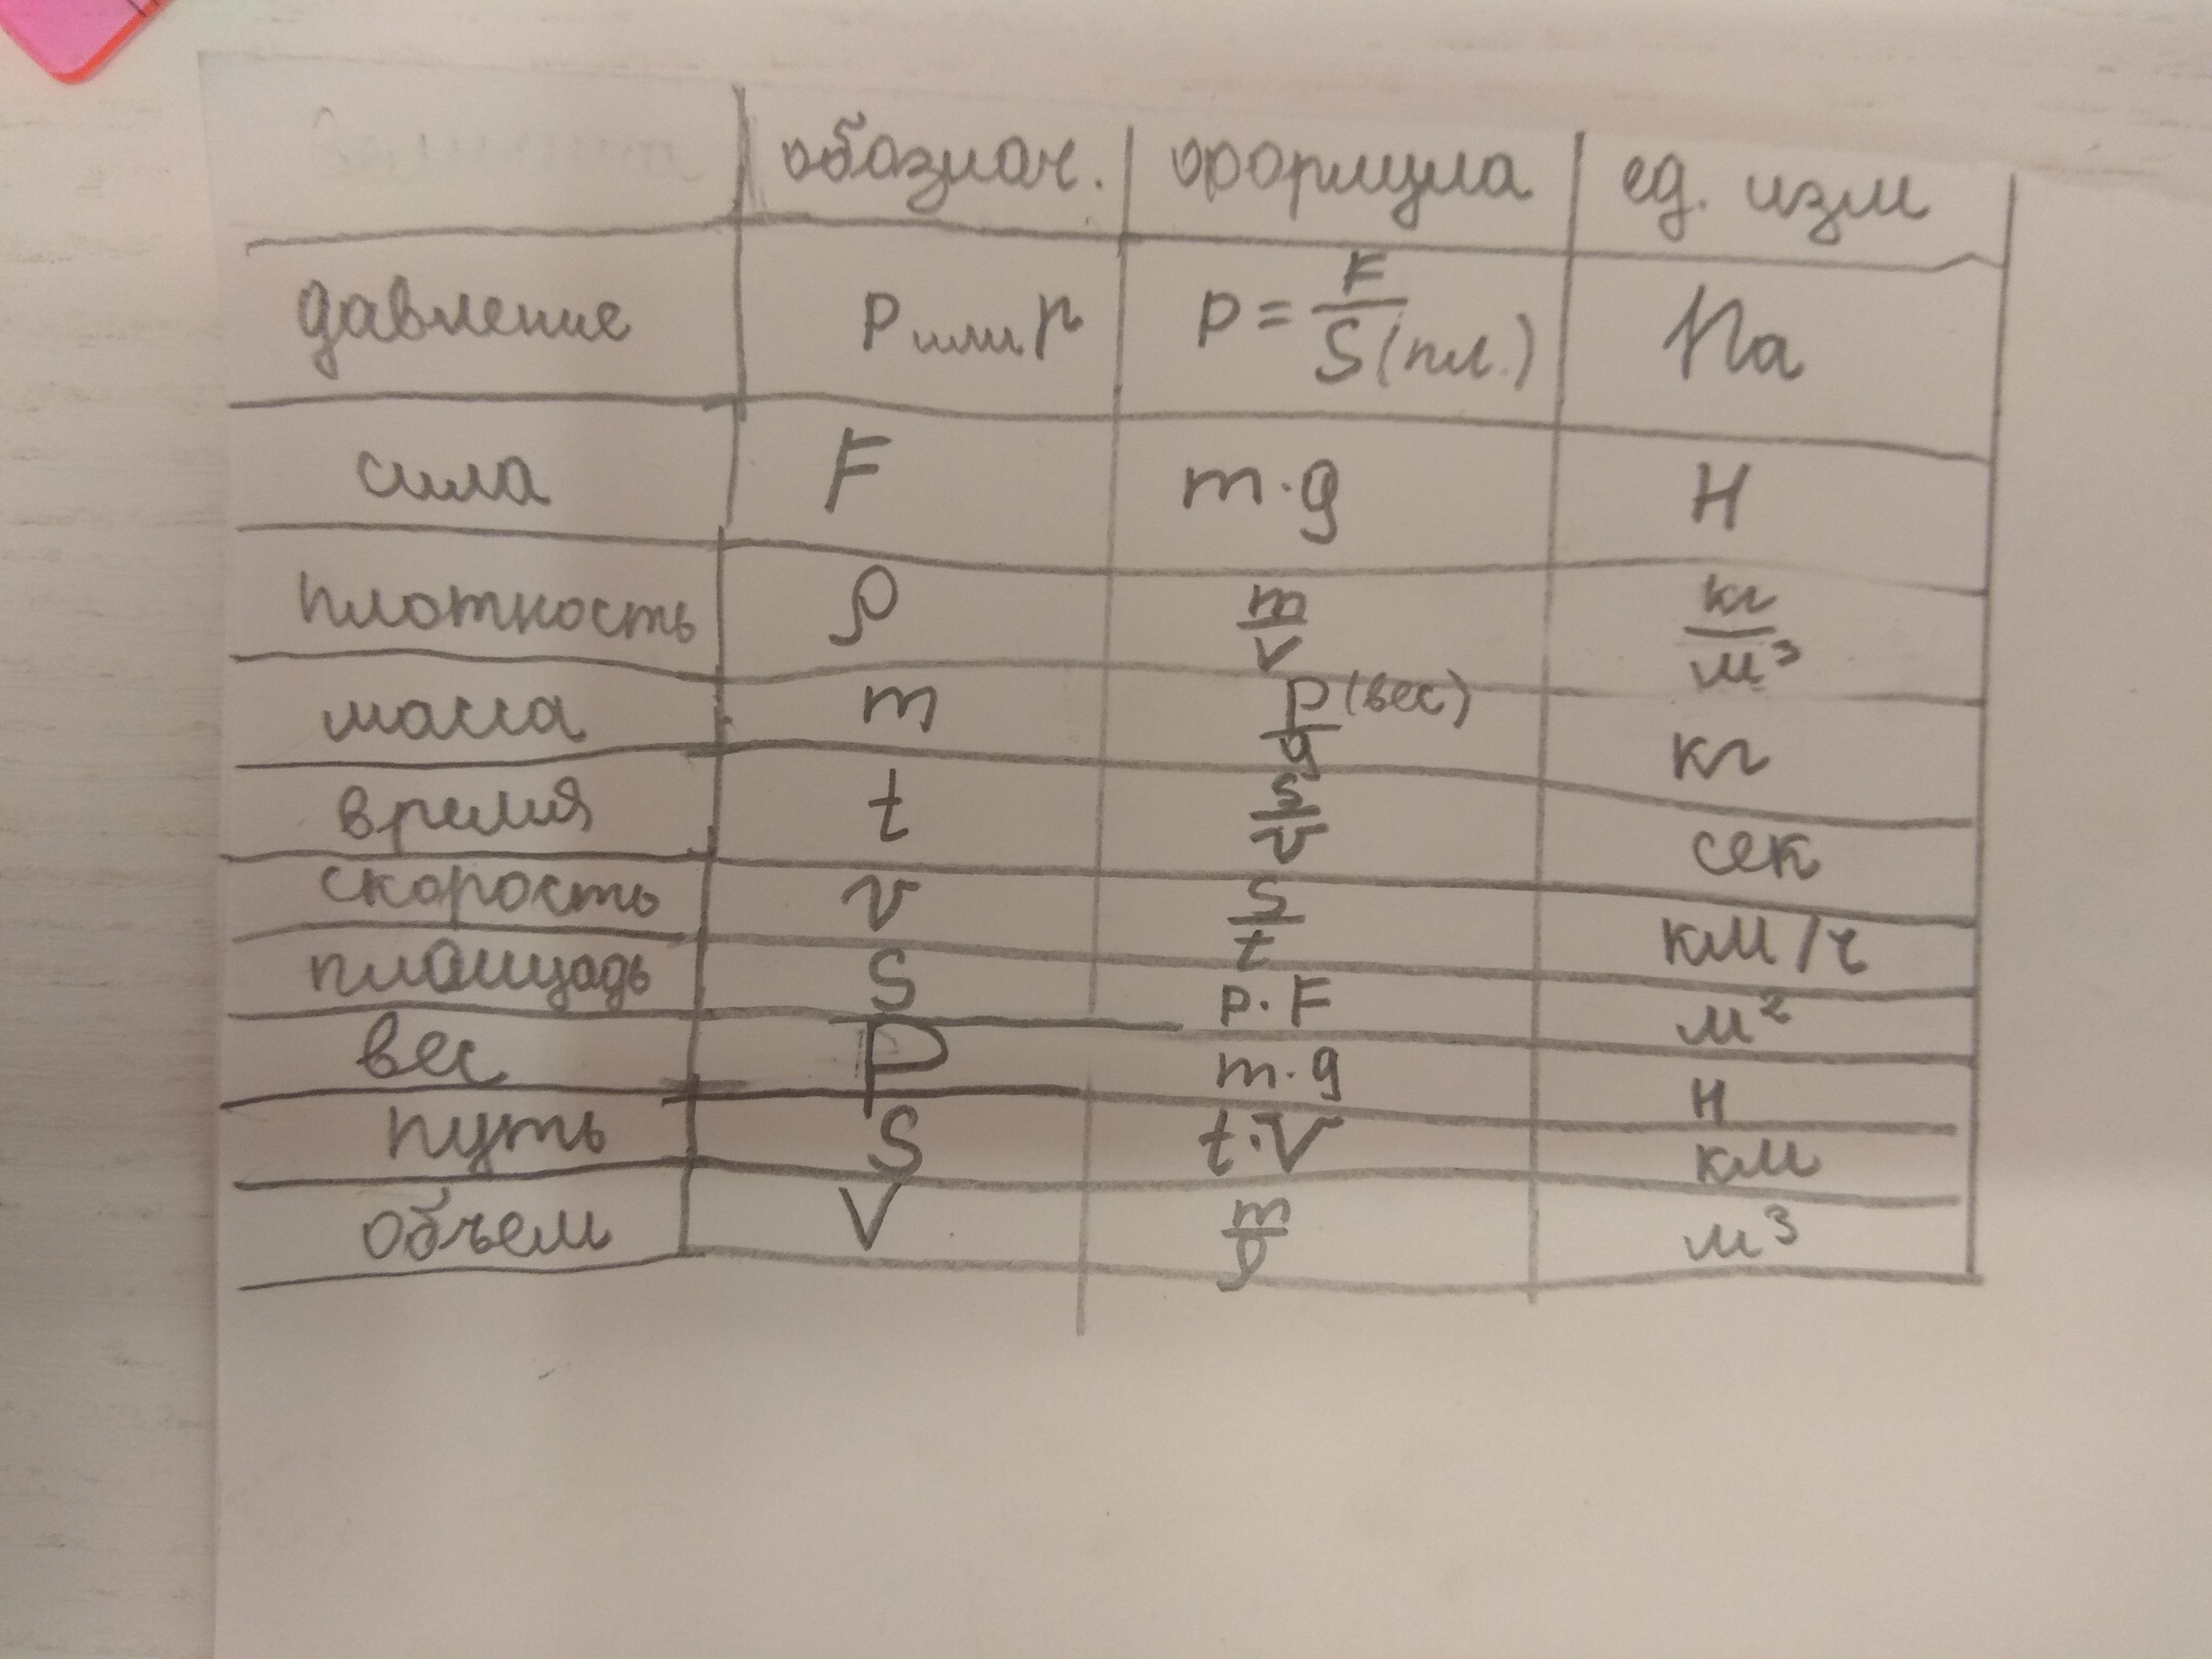 обознач. формула ед. изм
давление P или p P = F/S (пл.) Па
сила F m·g Н
плотность ρ m/V кг/м³
масса m P(вес)/g кг
время t S/v сек
скорость v S/t км/ч
площадь S p·F м²
вес P m·g Н
путь S t·V км
объем V m/ρ м³